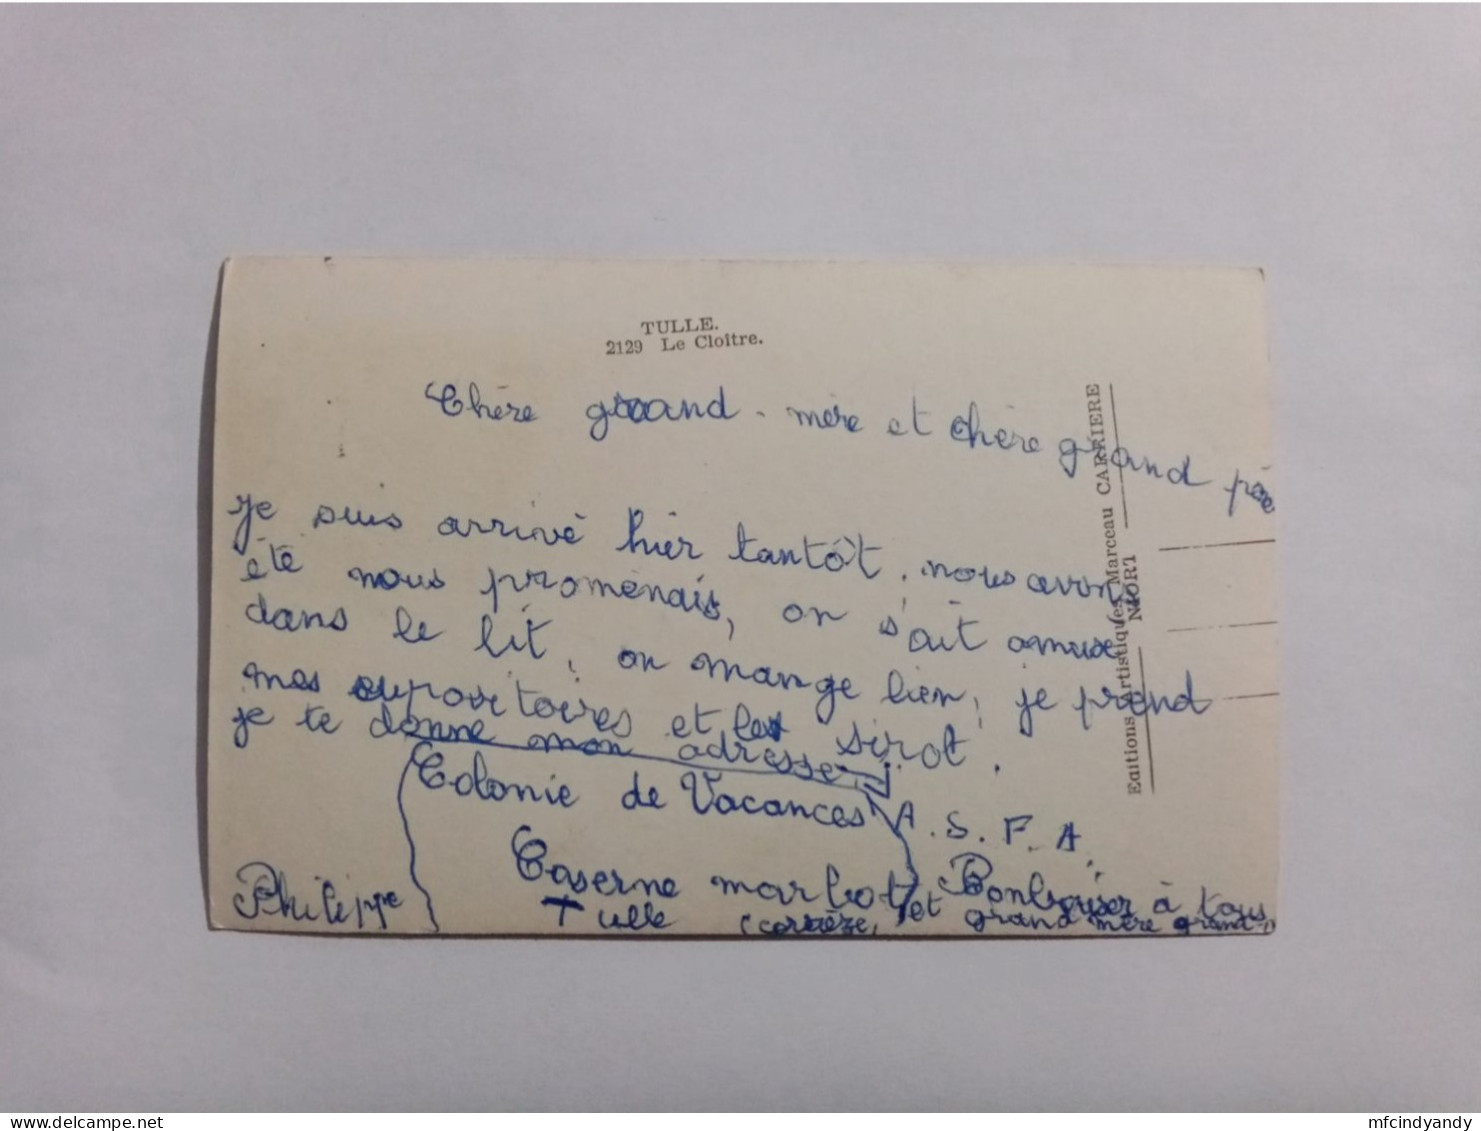 TULLE.
2129 Le Cloître.
Chère grand-mère et chère grand père
je suis arrivé hier tantôt, nous avons
été nous promenais, on s'ait amusé
dans le lit, on mange bien, je prend
mes supositoires et les sirot.
je te donne mon adresse
Colonie de Vacances A.S.F.A.
Caserne marbot
Tulle (corrèze)
et Bonbaiser à tous
grand mère grand-p
Philippe
Editions Artistiques Marceau CARRIERE
NIORT
mfcindyandy
delcampe.net